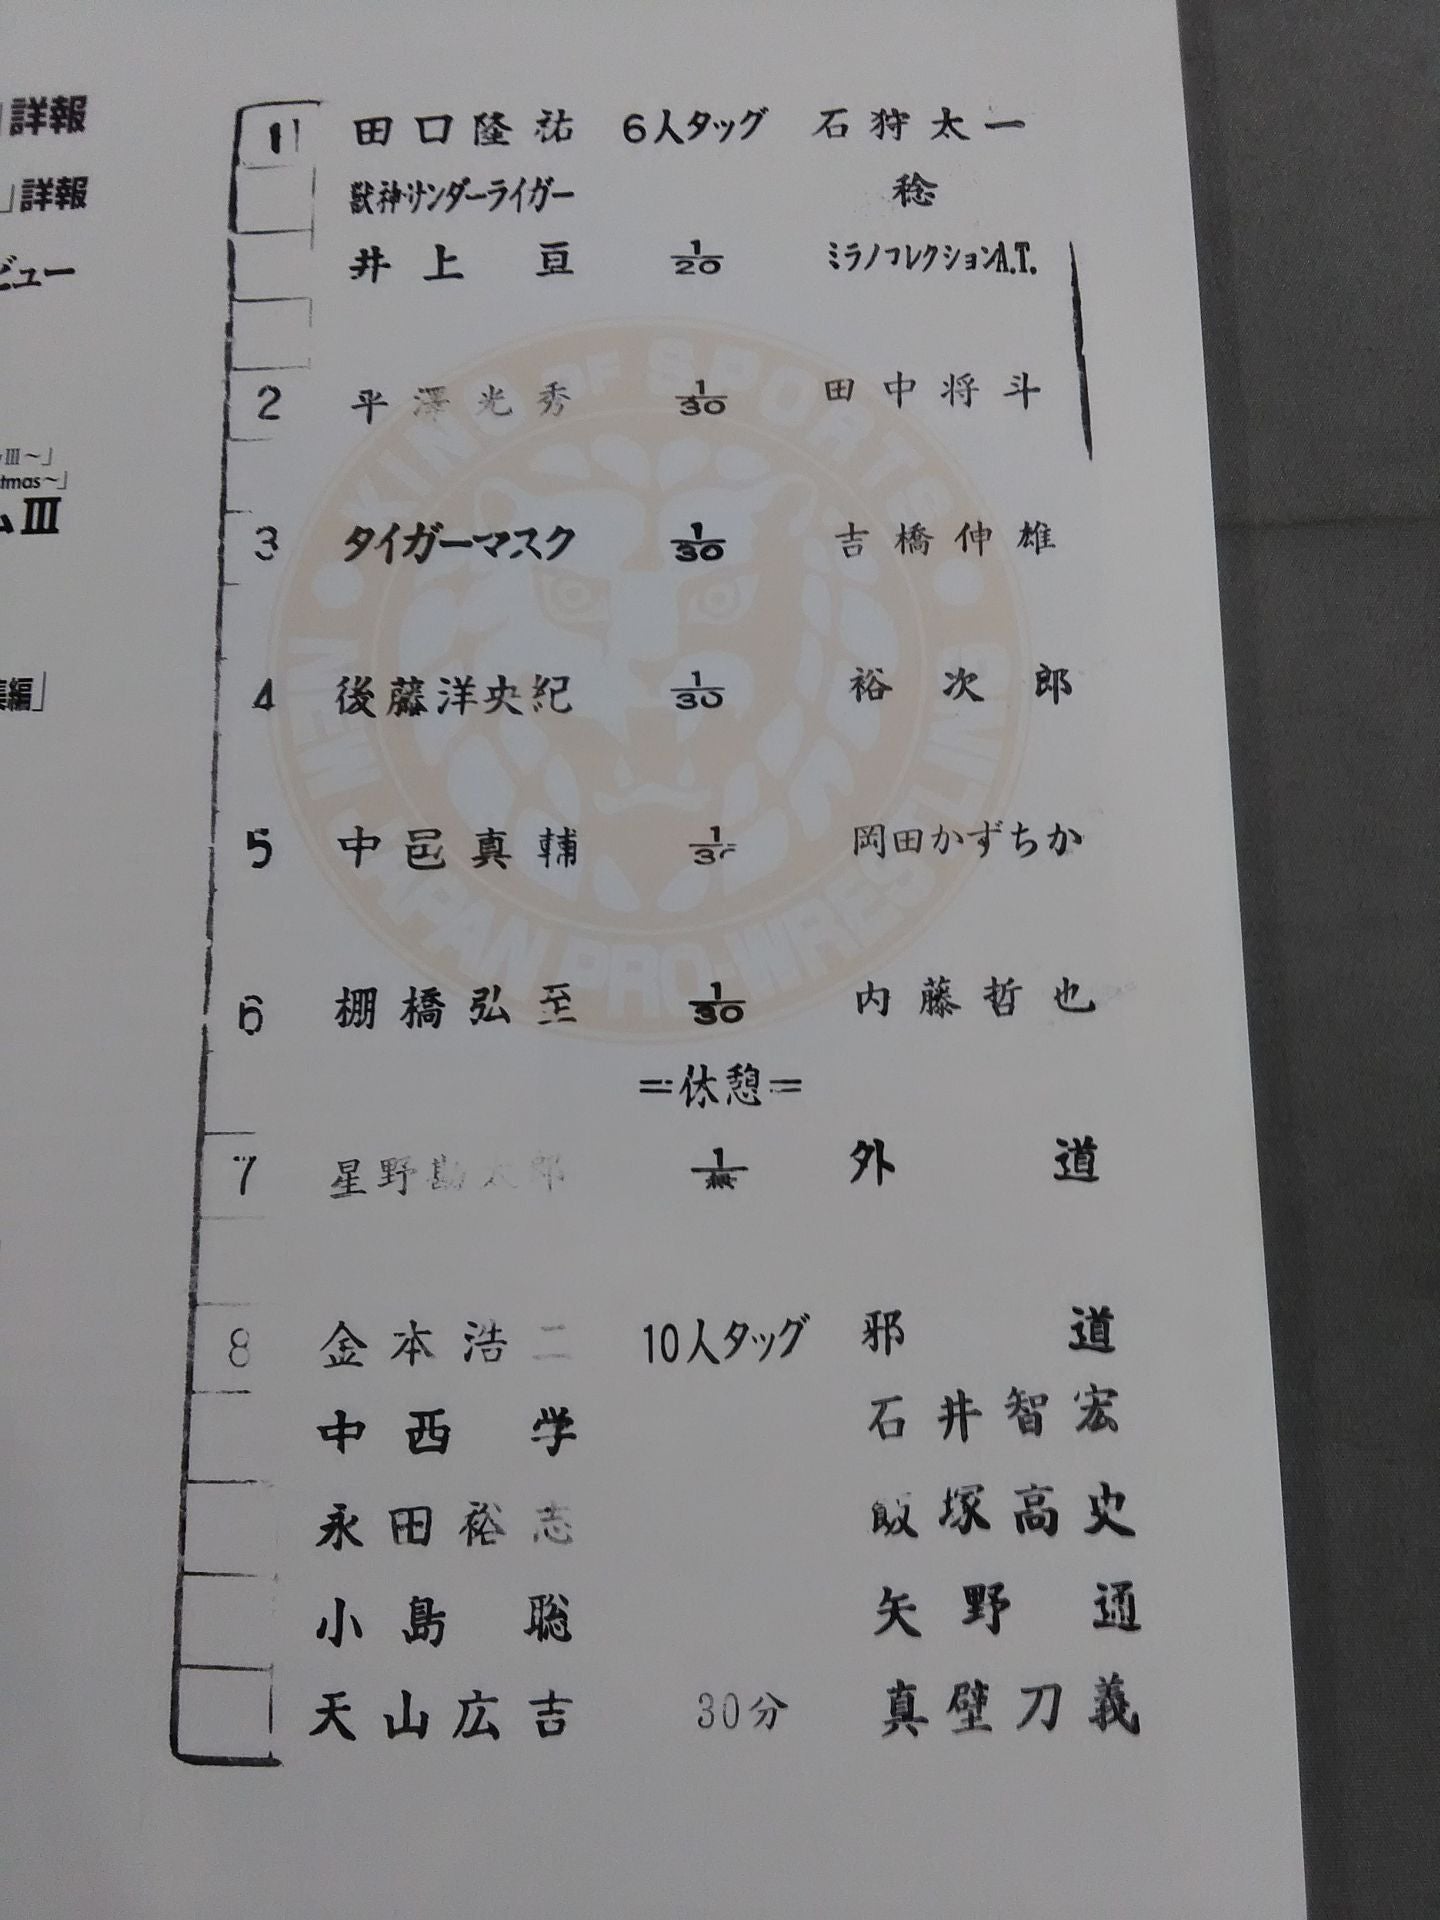 詳報
」詳報
ビュー
Ⅲ～」
tmas～」
ムⅢ
集編」
1 田口隆祐 6人タッグ 石狩太一
獣神サンダーライガー 稔
井上亘 1/20 ミラノコレクションA.T.
2 平澤光秀 1/30 田中将斗
3 タイガーマスク 1/30 吉橋伸雄
4 後藤洋央紀 1/30 裕次郎
5 中邑真輔 1/30 岡田かずちか
6 棚橋弘至 1/30 内藤哲也
=休憩=
7 星野勘太郎 1/無 外道
8 金本浩二 10人タッグ 邪道
中西学 石井智宏
永田裕志 飯塚高史
小島聡 矢野通
天山広吉 30分 真壁刀義
KING OF SPORTS
NEW JAPAN PRO-WRESTLING